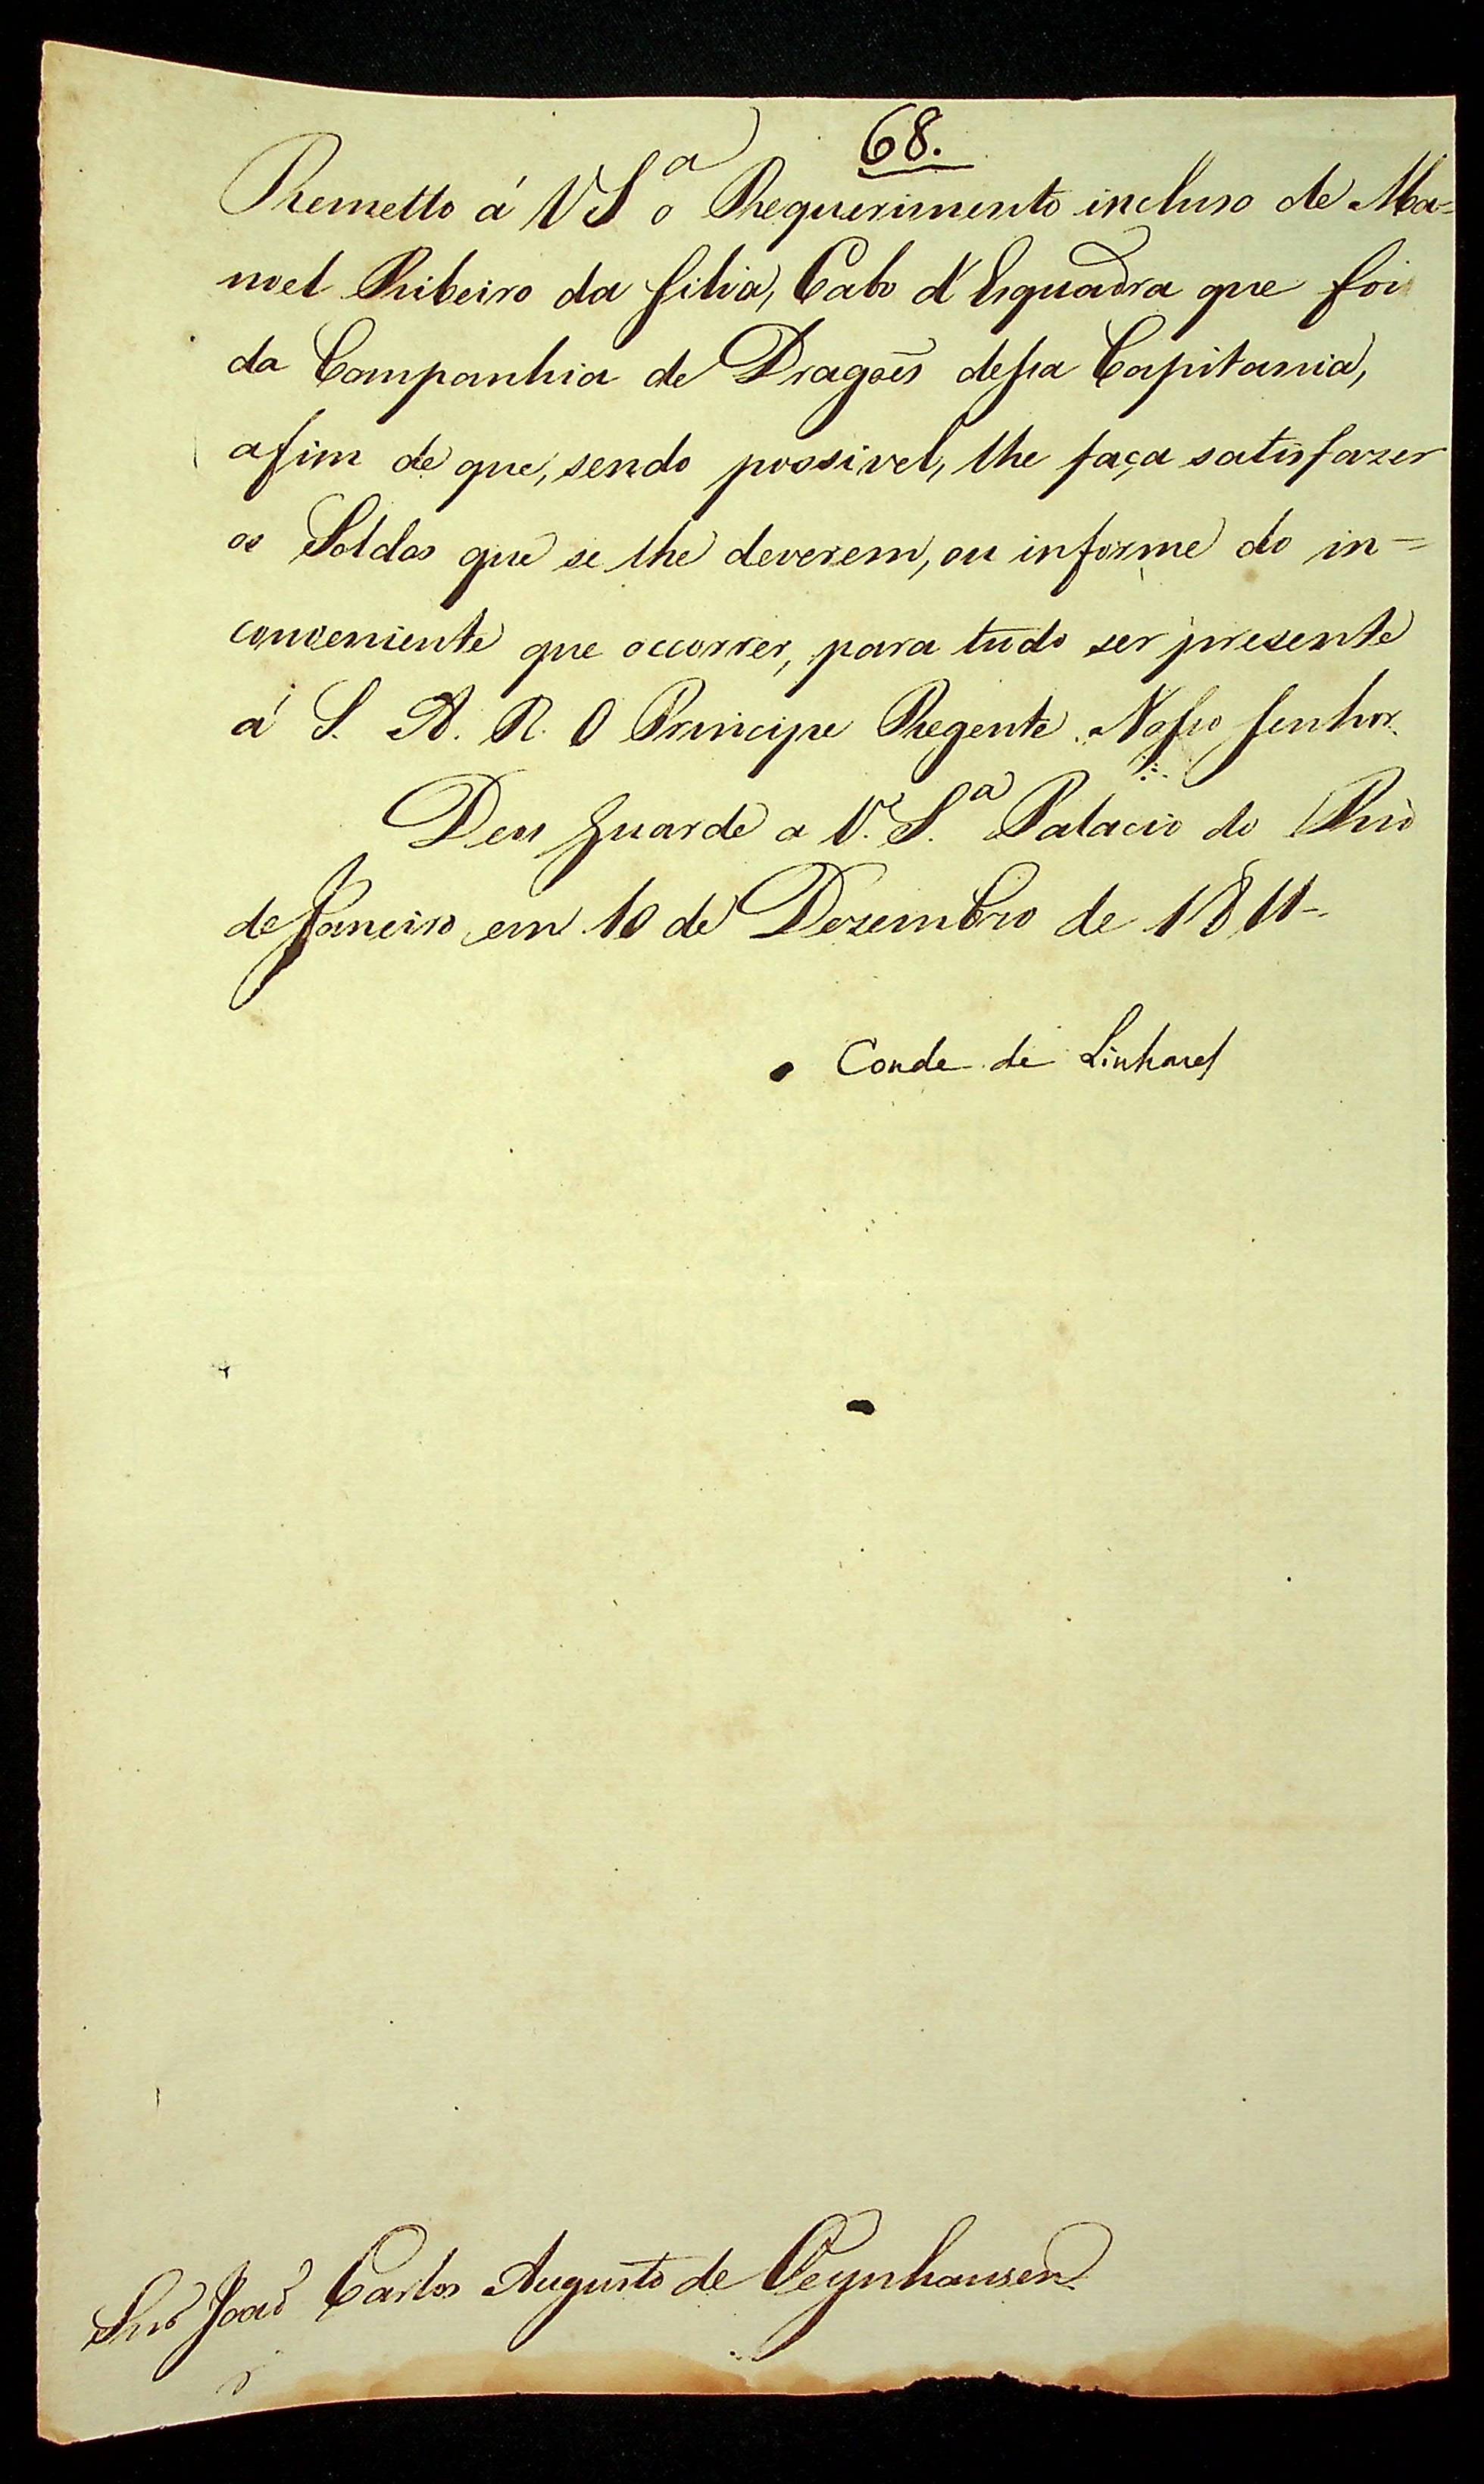 68.
Remetto á VS.ª o Requerimento incluso de Ma=
noel Ribeiro da Silva, Cabo d'Esquadra que foi
da Companhia de Dragoẽs dessa Capitania,
afim de que, sendo possivel, lhe faça satisfazer
os Soldos que se lhe deverem, ou informe do in=
conveniente que occorrer, para tudo ser presente
á S. A. R. O Principe Regente Nosso Senhor.
Deos Guarde a V. S.ª Palacio do Rio
de Janeiro em 10 de Dezembro de 1811-
Conde de Linhares
Snr̃ João Carlos Augusto de Oeynhausen